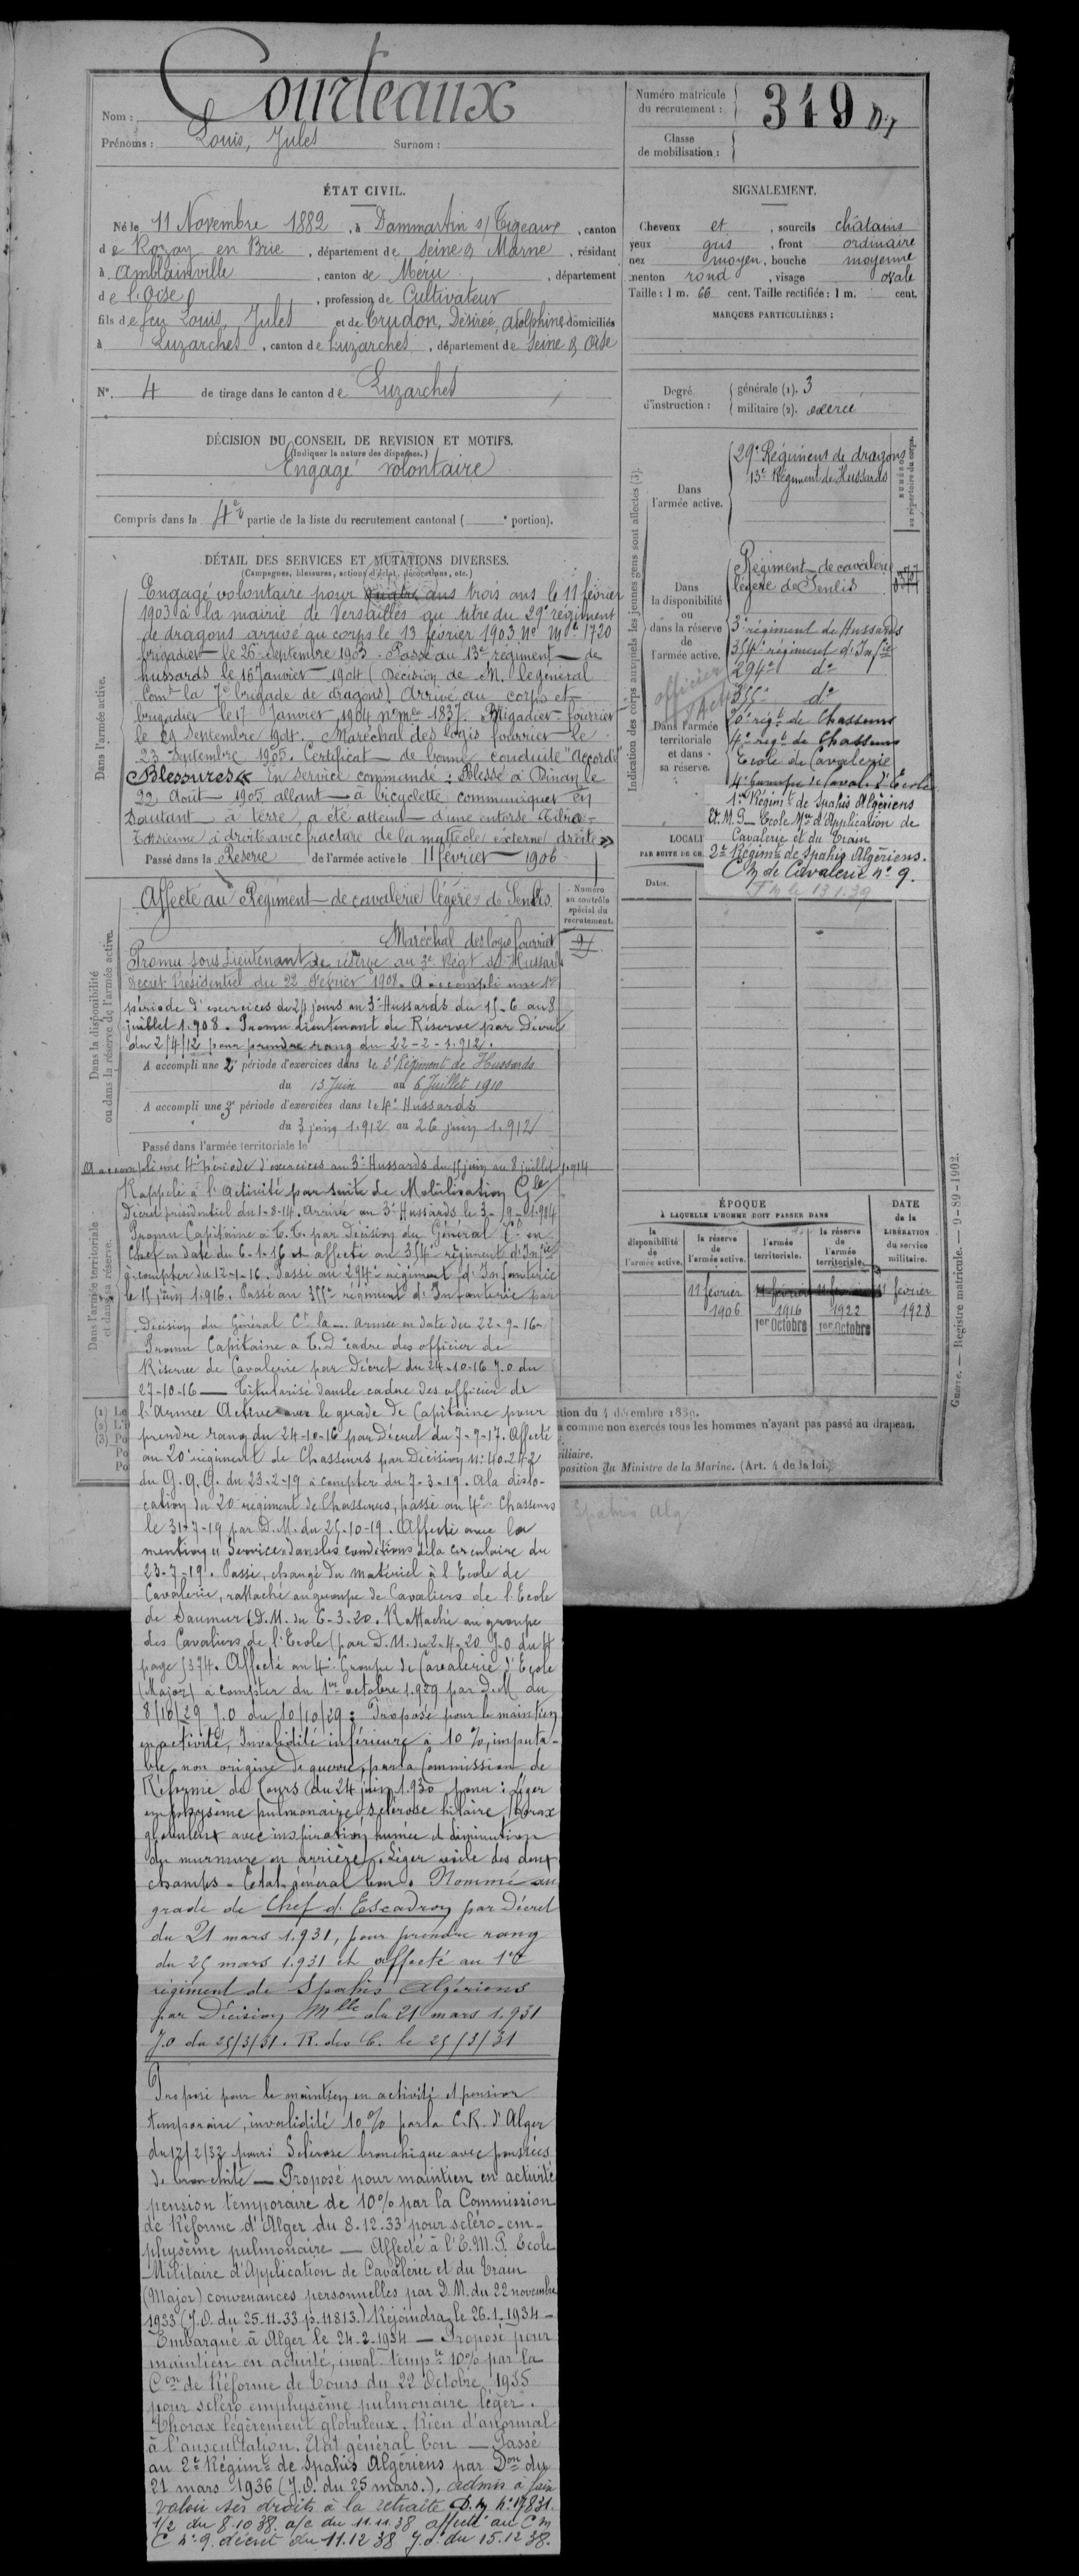 Nom : Courteaux
Prénoms : Louis, Jules Surnom :
Numéro matricule du recrutement : 319
Classe de mobilisation :
ÉTAT CIVIL.
Né le 11 Novembre 1882, à Dammartin s/ Tigeaux, canton
de Rozoy en Brie, département de Seine & Marne, résidant
à Amblainville, canton de Méru, département
de l'Oise, profession de Cultivateur
fils de feu Louis, Jules et de Trudon, Désirée, Adolphine domiciliés
à Luzarches, canton de Luzarches, département de Seine & Oise
N° 4 de tirage dans le canton de Luzarches
SIGNALEMENT.
Cheveux et, sourcils châtains
yeux gris, front ordinaire
nez moyen, bouche moyenne
menton rond, visage ovale
Taille : 1 m. 66 cent. Taille rectifiée : 1 m. cent.
MARQUES PARTICULIÈRES :
Degré d'instruction : générale (1). 3
militaire (2). exercé
DÉCISION DU CONSEIL DE REVISION ET MOTIFS.
(Indiquer la nature des dispenses.)
Engagé volontaire
Compris dans la 4e partie de la liste du recrutement cantonal ( e portion).
DÉTAIL DES SERVICES ET MUTATIONS DIVERSES.
(Campagnes, blessures, actions d'éclat, décorations, etc.)
Dans l'armée active.
Engagé volontaire pour quatre ans trois ans le 11 février
1903 à la mairie de Versailles au titre du 29e régiment
de dragons arrivé au corps le 13 février 1903 No Mle 1720
brigadier le 26 Septembre 1903. Passé au 13e régiment de
hussards le 16 Janvier 1904 (Décision de M. le général
Comt la 7e brigade de dragons) Arrivé au corps et
brigadier le 17 Janvier 1904 no mle 1837. Brigadier-fourrier
le 29 Septembre 1904. Maréchal des logis fourrier le
23 Septembre 1905. Certificat de bonne conduite "Accordé"
Blessures « En service commandé : Blessé à Dinan le
22 Août 1905 allant à bicyclette communiquer En
Sautant à terre, a été atteint d'une entorse Tibio-
Tarsienne à droite avec fracture de la malléole externe droite »
Passé dans la Réserve de l'armée active le 11 février 1906
Numéro au contrôle spécial du recrutement.
Dans la disponibilité ou dans la réserve de l'armée active.
Affecté au Régiment de cavalerie légère de Senlis
Maréchal des logis fourrier
Promu sous Lieutenant de réserve au 3e Régt de Hussards
Décret Présidentiel du 22 Février 1908. A accompli une 1re
période d'exercices de 24 jours au 3e Hussards du 15-6 au 8
juillet 1.908. Promu Lieutenant de Réserve par Décret
du 2/4/12 pour prendre rang du 22-2-1.912.
A accompli une 2e période d'exercices dans le 3e Régiment de Hussards
du 13 Juin au 6 Juillet 1910
A accompli une 3e période d'exercices dans le 4e Hussards
du 3 juin 1.912 au 26 juin 1.912
Passé dans l'armée territoriale le
A accompli une 4e période d'exercices au 3e Hussards du 15 juin au 8 juillet 1.914
Dans l'armée territoriale et dans sa réserve.
Rappelé à l'activité par suite de Mobilisation Gle
Décret présidentiel du 1-8-14. Arrivé au 3e Hussards le 3-
Promu Capitaine à T.T. par Décision du Général Ct en
Chef en date du 6-1-16 et affecté au 354e régiment d'Infie
à compter du 12-1-16. Passé au 294e régiment d'Infanterie
le 15 juin 1.916. Passé au 355e régiment d'Infanterie par
Décision du Général Ct la Armée en date du 22-9-16
Promu Capitaine à T.D cadre des officier de
Réserve de Cavalerie par Décret du 24-10-16 J.O du
27-10-16 — Titularisé dans le cadre des officier de
l'Armée Active avec le grade de Capitaine pour
prendre rang du 24-10-16 par Décret du 7-9-17. Affecté
au 20e régiment de Chasseurs par Décision N° 40.242
du G.Q.G. du 23-2-19 à compter du 7-3-19. A la dislo-
cation du 20e régiment de Chasseurs, passe au 4e Chasseurs
le 31-7-19 par D.M. du 25-10-19. Affecté avec la
mention "Service" dans les conditions de la circulaire du
23-7-19. Passé, chargé du matériel à l'Ecole de
Cavalerie, rattaché au groupe de Cavaliers de l'Ecole
de Saumur (D.M. du 6-3-20. Rattaché au groupe
des Cavaliers de l'Ecole (par D.M. du 2-4-20 J.O du 4
page 5374. Affecté au 4e Groupe de Cavalerie d'Ecole
(Major) à compter du 1er octobre 1.929 par D.M du
8/10/29 J.O du 10/10/29. Proposé pour le maintien
en activité, Invalidité inférieure à 10 %, imputa-
ble non origine de guerre, par la Commission de
Réforme de Tours (du 24 juin 1.930 pour : Léger
emphysème pulmonaire, sclérose hilaire, thorax
globuleux avec inspiration humée et diminution
du murmure en arrière. Léger voile des deux
champs - Etat général bon. Nommé au
grade de Chef d'Escadron par Décret
du 21 mars 1.931, pour prendre rang
du 25 mars 1.931 et affecté au 1er
régiment de Spahis Algériens
par Décision Mlle du 21 mars 1.931
J.O du 25/3/31. R. des C. le 25/3/31
Proposé pour le maintien en activité et pension
temporaire, invalidité 10 % par la C.R. d'Alger
du 12/2/32 pour : Sclérose bronchique avec poussées
de bronchite — Proposé pour maintien en activité
pension temporaire de 10% par la Commission
de Réforme d'Alger du 8.12.33 pour scléro-em-
physème pulmonaire — Affecté à l'E.M.P. Ecole
Militaire d'Application de Cavalerie et du Train
(Major) convenances personnelles par D.M. du 22 novembre
1933 (J.O. du 25-11-33 p. 11813.) Rejoindra le 26.1.1934 —
Embarqué à Alger le 24-2-1934 — Proposé pour
maintien en activité, inval. tempre 10% par la
Con de Réforme de Tours du 22 Octobre 1935
pour scléro emphysème pulmonaire léger.
Thorax légèrement globuleux. Rien d'anormal
à l'auscultation. Etat général bon — Passé
au 2e Régimt de Spahis Algériens par Don du
21 mars 1936 (J.O. du 25 mars.). admis à faire
valoir ses droits à la retraite D.M N° 17831.
1/2 du 8.10.38 a/c du 11.11.38 affecté au CM
C n° 9. décret du 11.12.38 J.O. du 15.12.38.
Indication des corps auxquels les jeunes gens sont affectés (3).
NUMÉRO au répertoire du corps.
Dans l'armée active.
29e Régiment de dragons
13e Régiment de Hussards
Dans la disponibilité ou dans la réserve de l'armée active.
Régiment de cavalerie
légère de Senlis
3e régiment de Hussards
354e régiment d'Infie
294e do
355e do
officier
Dans l'armée territoriale et dans sa réserve.
20e régt de Chasseurs
4e régt de Chasseurs
Ecole de Cavalerie
4e Groupe de Cavale d'Ecole
1er Régimt de Spahis Algériens
Et. M. P — Ecole Mre d'Application de
Cavalerie et du Train
2e Régimt de Spahis Algériens.
CM de Cavalerie n° 9.
LOCALI
PAR SUITE DE CH
Dates.
ÉPOQUE
À LAQUELLE L'HOMME DOIT PASSER DANS
DATE de la LIBÉRATION du service militaire.
la disponibilité de l'armée active.
la réserve de l'armée active.
l'armée territoriale.
la réserve de l'armée territoriale.
11 février 1906
11 février 1916 1er Octobre
11 février 1922 1er Octobre
11 février 1928
Guerre. — Registre matricule. — 9-89-1902.
tion du 4 décembre 1889.
comme non exercés tous les hommes n'ayant pas passé au drapeau.
position du Ministre de la Marine. (Art. 4 de la loi.)
Spahis Alg